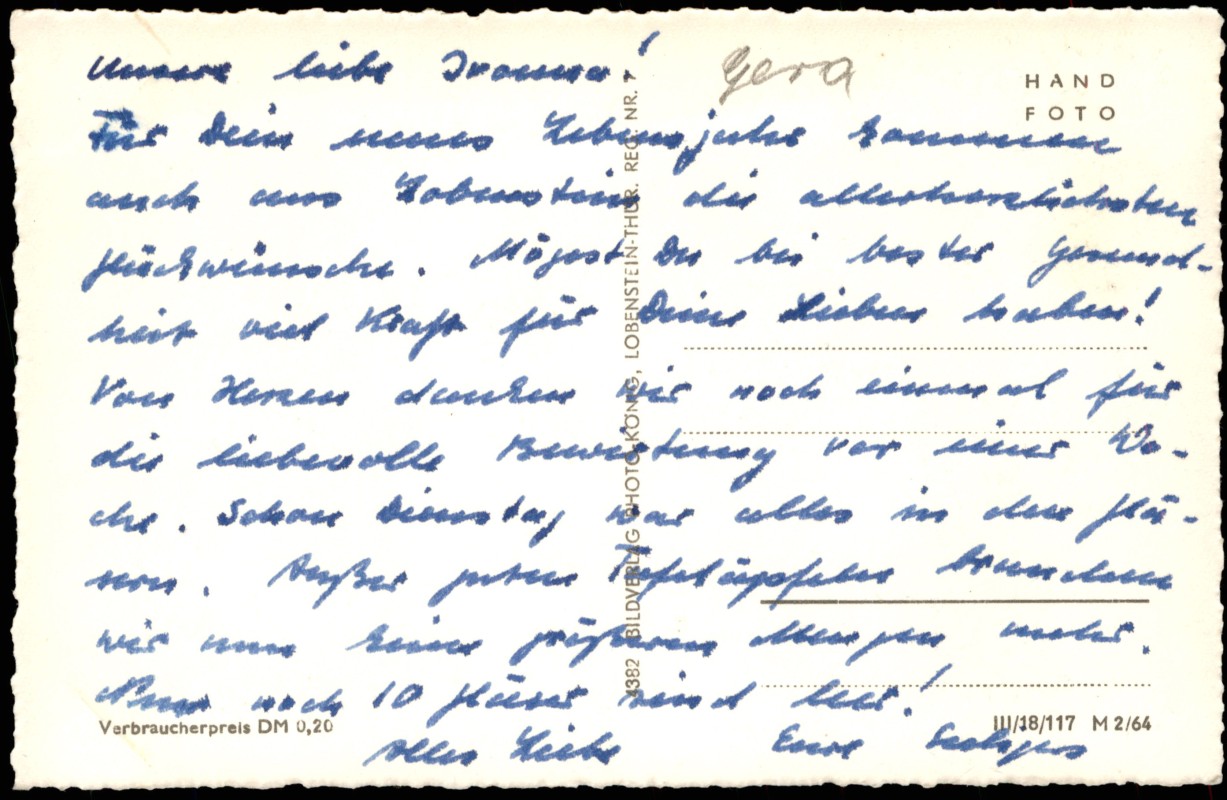 Unsere liebe Ivonna!
Gera
HAND
FOTO
Für Dein neues Lebensjahr kommen
auch aus Lobenstein die allerherzlichsten
Glückwünsche. Mögest Du bei bester Gesund-
heit viel Kraft für Deine Lieben haben!
Von Herzen danken wir noch einmal für
die liebevolle Bewirtung vor einer Wo-
che. Schon Dienstag war alles in den Glä-
sern. Außer guten Tafeläpfeln brauchen
wir nun keine größeren Mengen mehr.
Nur noch 10 Gläser sind leer!
Alles Liebe Eure
4382 BILDVERLAG PHOTO-KÖNIG, LOBENSTEIN-THÜR. REG. NR. 7
Verbraucherpreis DM 0,20
III/18/117 M 2/64